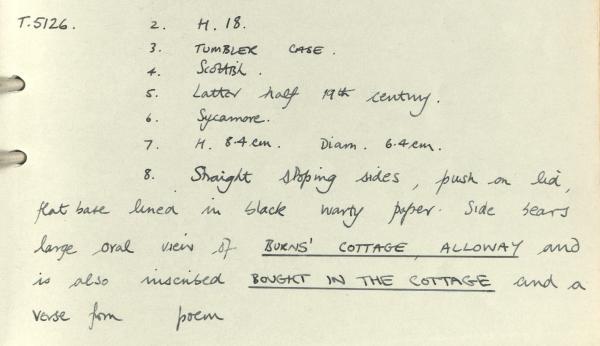 T.5126. 2. H. 18.
3. TUMBLER CASE.
4. Scottish.
5. Latter half 19th century.
6. Sycamore.
7. H. 8.4 cm. Diam. 6.4 cm.
8. Straight sloping sides, push on lid,
flat base lined in black warty paper. Side bears
large oval view of BURNS' COTTAGE, ALLOWAY and
is also inscribed BOUGHT IN THE COTTAGE and a
verse from poem